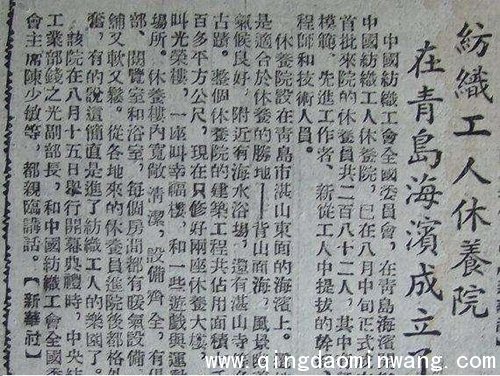 紡織工人休養院
在青島海濱成立了
中國紡織工會全國委員會,在青島海濱
中國紡織工人休養院,已在八月中旬正式
首批來院的休養員共二百八十二人,其中
模範、先進工作者、新從工人中提拔的幹
程師和技術人員。
休養院設在青島市湛山東面的海濱上。
是適合於休養的勝地——背山面海,風景
氣候良好,附近有海水浴場,還有湛山寺
古蹟。整個休養院的建築工程共佔用面積
百多平方公尺,現在只修好兩座休養大樓,
叫光榮樓,一座叫幸福樓,和一些遊戲與運動
場所。休養樓內寬敞清潔,設備齊全,有
部、閱覽室和浴室,每個房間都有暖氣設備
鋪又軟又鬆。從各地來的休養員進院後都格外
奮,有的說這簡直是進了紡織工人的樂園了。
該院在八月十五日舉行開幕典禮時,中央紡
工業部錢之光副部長,和中國紡織工會全國委
會主席陳少敏等,都親臨講話。【新華社】
www.qingdaominwang.com